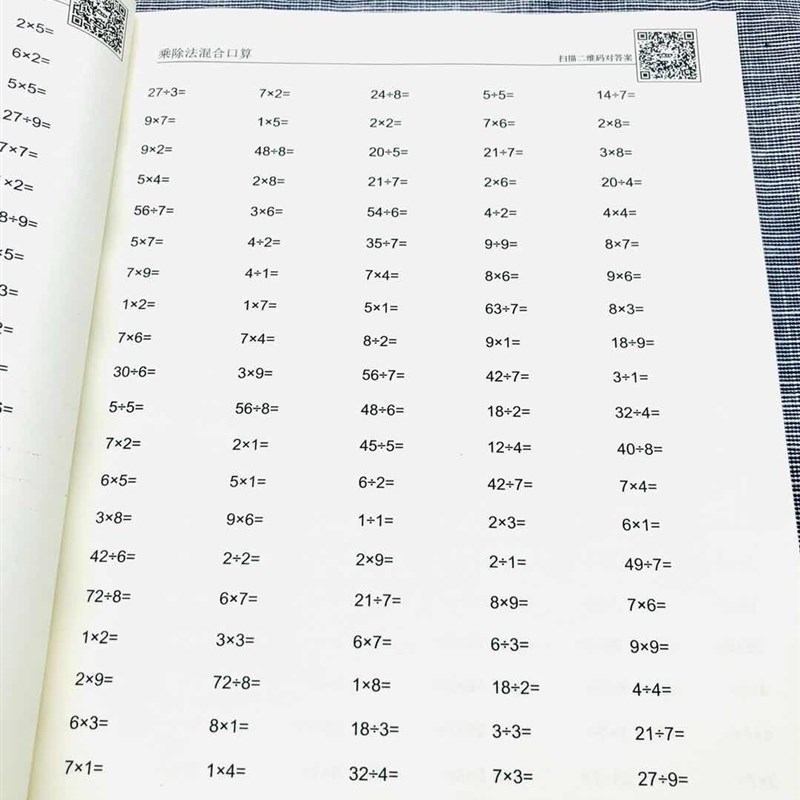 2×5=
6×2=
5×5=
27÷9=
7×7=
×2=
8÷9=
×5=
3=
2=
=
6=
乘除法混合口算 扫描二维码对答案
27÷3= 7×2= 24÷8= 5÷5= 14÷7=
9×7= 1×5= 2×2= 7×6= 2×8=
9×2= 48÷8= 20÷5= 21÷7= 3×8=
5×4= 2×8= 21÷7= 2×6= 20÷4=
56÷7= 3×6= 54÷6= 4÷2= 4×4=
5×7= 4÷2= 35÷7= 9÷9= 8×7=
7×9= 4÷1= 7×4= 8×6= 9×6=
1×2= 1×7= 5×1= 63÷7= 8×3=
7×6= 7×4= 8÷2= 9×1= 18÷9=
30÷6= 3×9= 56÷7= 42÷7= 3÷1=
5÷5= 56÷8= 48÷6= 18÷2= 32÷4=
7×2= 2×1= 45÷5= 12÷4= 40÷8=
6×5= 5×1= 6÷2= 42÷7= 7×4=
3×8= 9×6= 1÷1= 2×3= 6×1=
42÷6= 2÷2= 2×9= 2÷1= 49÷7=
72÷8= 6×7= 21÷7= 8×9= 7×6=
1×2= 3×3= 6×7= 6÷3= 9×9=
2×9= 72÷8= 1×8= 18÷2= 4÷4=
6×3= 8×1= 18÷3= 3÷3= 21÷7=
7×1= 1×4= 32÷4= 7×3= 27÷9=